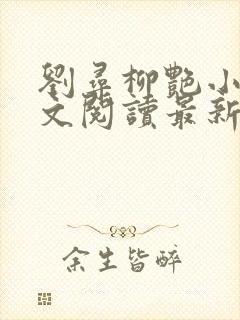 劉尋柳艷小
文閱讀最新
余生皆醉